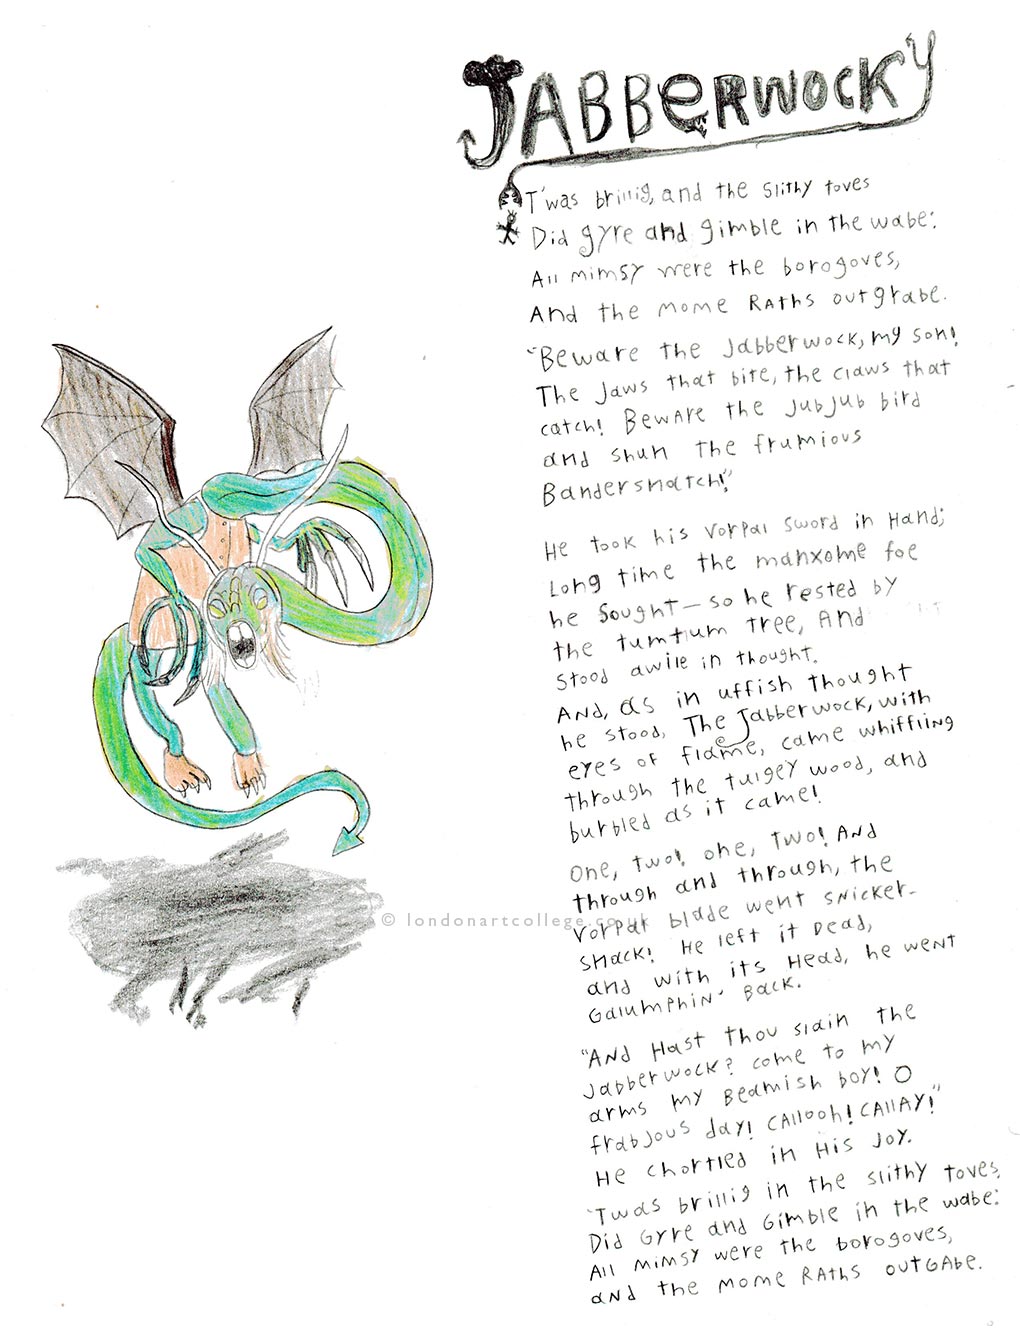 JABBERWOCKY
T'was brillig, and the slithy toves
Did gyre and gimble in the wabe:
All mimsy were the borogoves,
And the mome RAThs outgrabe.
"Beware the Jabberwock, my son!
The Jaws that bite, the claws that
catch! BewAre the Jubjub bird
and shun the frumious
Bandersnatch!"
He took his vorpal sword in Hand;
Long time the manxome foe
he sought — so he rested by
the tumtum tree, And
Stood awile in thought.
And, as in uffish thought
he stood, The Jabberwock, with
eyes of flame, came whiffling
through the tulgey wood, and
burbled as it came!
One, two! one, two! And
through and through, the
vorpal blade went snicker-
snack! He left it Dead,
and with its Head, he went
Galumphin' Back.
"And Hast thou slain the
Jabberwock? come to my
arms my Beamish boy! O
frabjous day! CAllooh! CAllAy!"
He chortled in His Joy.
'Twas brillig in the slithy toves,
Did Gyre and Gimble in the wabe:
All mimsy were the borogoves,
and the mome RAths outGAbe.
© londonartcollege.co.uk